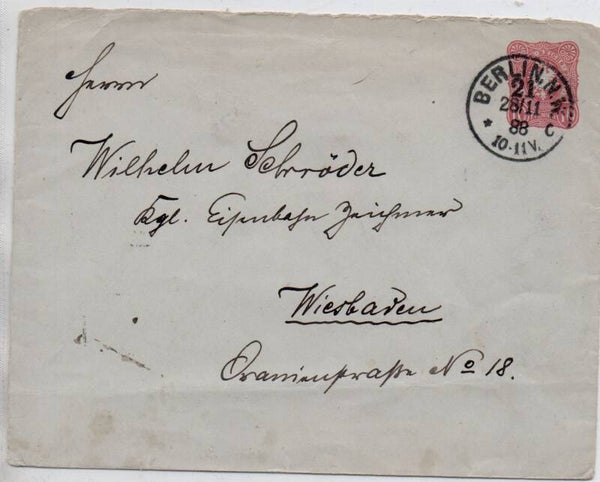 Herrn
Wilhelm Schröder
Kgl. Eisenbahn Zeichner
Wiesbaden
Oranienstraße No 18.
BERLIN.N.W.
21
28/11
88
* 10-11V. c